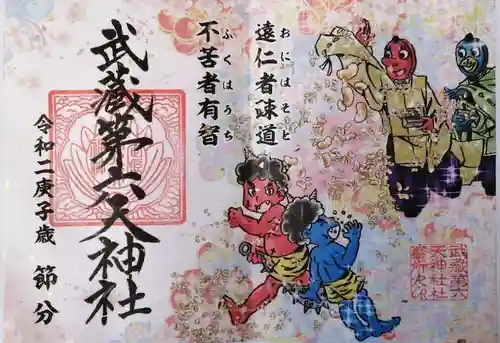 おにはそと
遠仁者疎道
ふくはうち
不苦者有智
武蔵第六天神社
令和二庚子歳 節分
武蔵第六
天神社社
務所之印